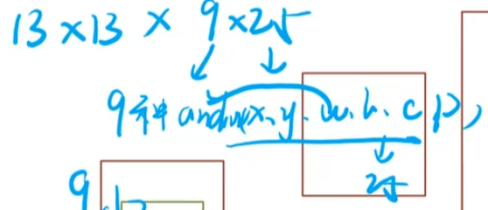 13 × 13 × 9 × 25
9种 anchor(x、y、w、h、c), 
25
9